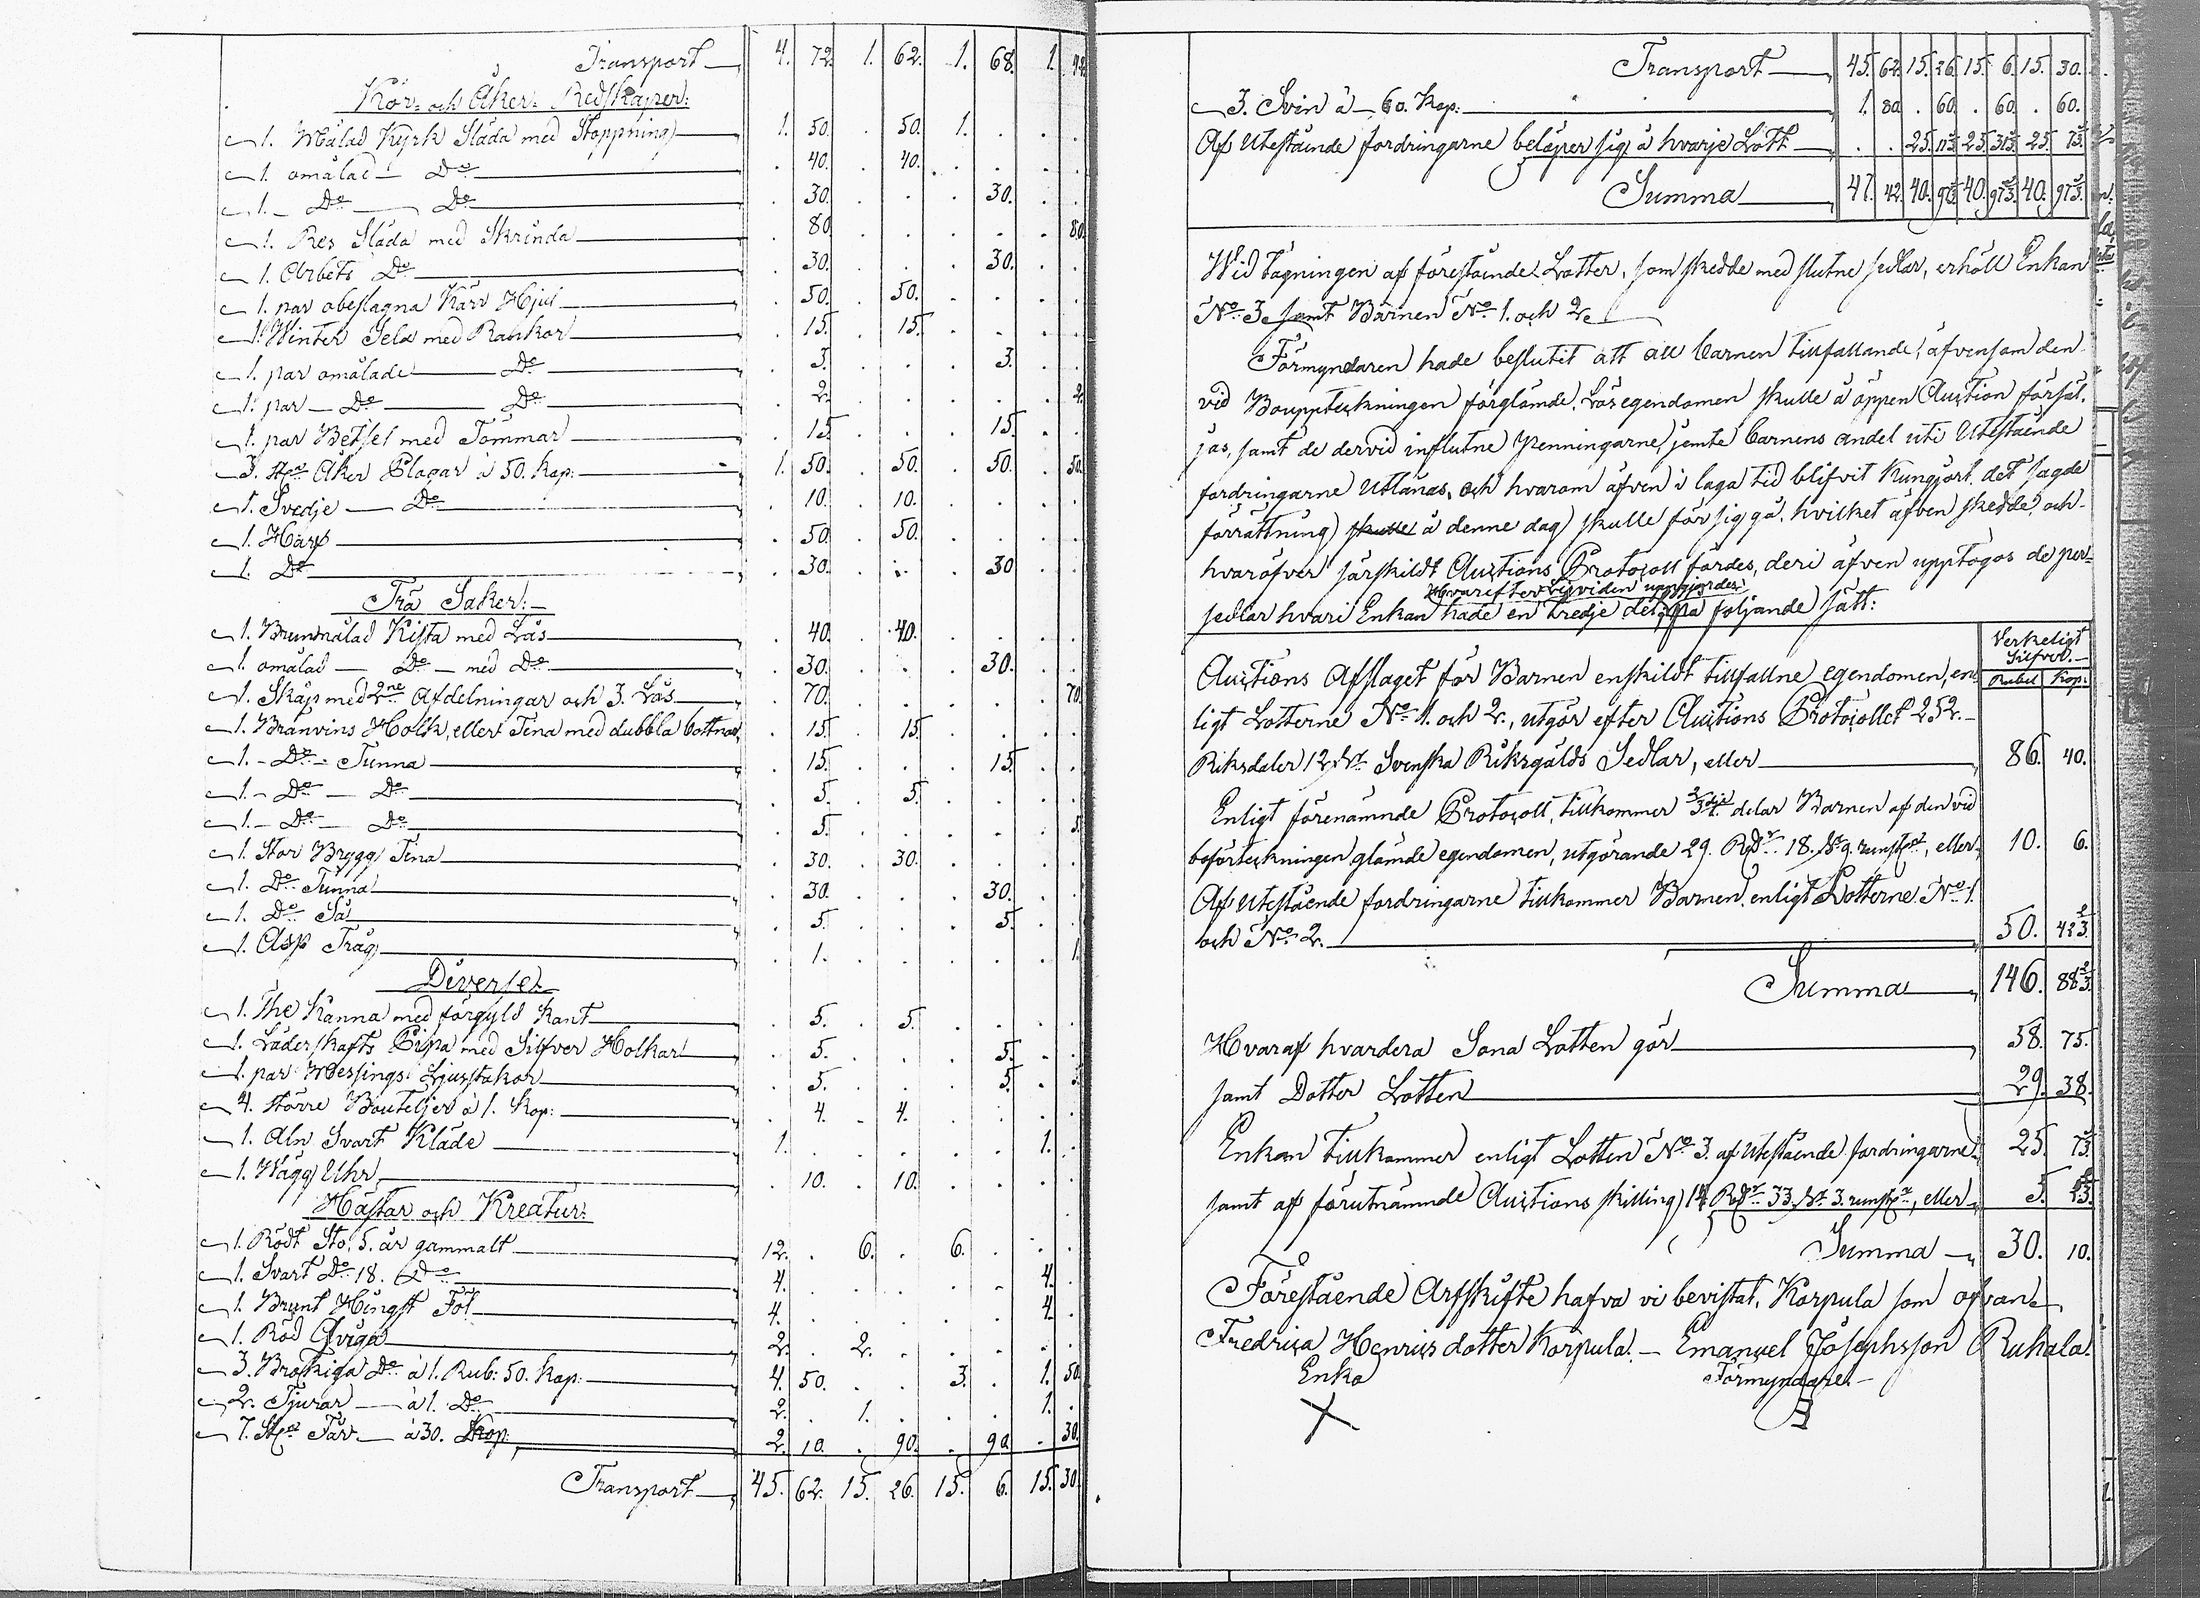 Transport 4. 72. 1. 62. 1. 68. 1. 42.
Kör- och Åker- Redskaper:
1. Målad Kyrk Släda med Stoppning 1. 50. . 50. 1. . . .
1. omålad Do . 40. . 40. . . . .
1. Do Do . 30. . . . 30. . .
1. Res Släda med Skrinda . 80. . . . . . 80.
1. Arbets Do . 30. . . . 30. . .
1. par obeslagna Kärr Hjul . 50. . 50. . . . .
1. Winter Sela med Rankor . 15. . 15. . . . .
1. par omålade Do . 3. . . . 3. . .
1. par Do Do . 2. . . . . . 2.
1. par Betsel med Tömmar . 15. . . . 15. . .
3. St. Åker Plogar à 50. Kop: 1. 50. . 50. . 50. . 50.
1. Svedje Do . 10. . 10. . . . .
1. Harf . 50. . 50. . . . .
1. Do . 30. . . . 30. . .
Trä Saker:
1. Brunmålad Kista med Lås . 40. . 40. . . . .
1. omålad Do med Do . 30. . . . 30. . .
1. Skåp med 2ne Afdelningar och 3. Lås . 70. . . . . . 70.
1. Bränvins Holk, eller Tina med dubbla bottnar . 15. . 15. . . . .
1. Do Tunna . 15. . . . 15. . .
1. Do Do . 5. . 5. . . . .
1. Do Do . 5. . . . . . 5.
1. Stor Brygg Tina . 30. . 30. . . . .
1. Do Tunna . 30. . . . 30. . .
1. Do Så . 5. . . . 5. . .
1. Asp Tråg . 1. . . . . . 1.
Diverse
1. The Kanna med förgyld Kant . 5. . 5. . . . .
1. Läderskafts Pipa med Silfver Holkar . 5. . . . 5. . .
1. par Messings Ljusstakar . 5. . . . 5. . .
4. större Bouteljer à 1. Kop: . 4. . 4. . . . .
1. Aln Svart Kläde 1. . . . . . 1. .
1. Wägg Uhr . 10. . 10. . . . .
Hästar och Kreatur:
1. Rödt Sto, 5. år gammalt 12. . 6. . 6. . . .
1. Svart Do 18. Do 4. . . . . . 4. .
1. Brunt Hingst Föl 4. . . . . . 4. .
1. Röd Qviga 2. . 2. . . . . .
3. Brokiga Do à 1. Rub: 50. Kop: 4. 50. . . 3. . 1. 50.
2. Tjurar à 1. Do 2. . 1. . . . 1. .
7. St. Får à 30. Kop 2. 10. . 90. . 90. . 30.
Transport 45. 62. 15. 26. 15. 6. 15. 30.
Transport 45. 62. 15. 26. 15. 6. 15. 30.
3. Svin à 60. Kop: 1. 80. . 60. . 60. . 60.
Af Utestående fordringarne belöper sig å hvarje Lott . . 25. 25. 25.
Summa 47. 42. 40. 40. 40.
Wid tagningen af förestående Lotter, som skedde med slutne sedlar, erhöll Enkan
No 3. samt Barnen No 1. och 2.
Förmyndaren hade beslutit att all barnen tillfallande, äfvensom den
vid Bouppteckningen förglömde Lösegendomen skulle å öppen Auction försäl-
jas, samt de dervid influtne penningarne, jemte barnens andel uti Utestående
fordringarne Utlånas, och hvarom äfven i laga tid blifvit Kungjort, det sagde
förrättning skulle å denne dag skulle för sig gå, hvilket äfven skedde, och
hvaröfver särskildt Auctions Protocoll fördes, deri äfven upptogos de per-
Hvarefter Liqviden uppgjordes
sedlar hvari Enkan hade en tredje del, på följande sätt:
Verkeligt
Silfver.
Rubel Kop:
Auctions Afslaget för Barnen enskildt tillfallne egendomen, en-
ligt Lotterne No 1. och 2., utgör efter Auctions Protocollet 252.
Riksdaler 12 Sk Svenska Riksgälds Sedlar, eller 86. 40.
Enligt förenämnde Protocoll, tillkommer 2/3dje delar Barnen af den vid
boförteckningen glömde egendomen, utgörande 29. Rdr 18. Sk 9. runst, eller 10. 6.
Af Utestående fordringarne tillkommer Barnen enligt Lotterne No 1.
och No 2. 50. 42 2/3.
Summa 146. 88 2/3.
Hvaraf hvardera Sona Lotten gör 58. 75.
samt Dotter Lotten 29. 38.
Enkan tillkommer enligt Lotten No 3 af Utestående fordringarne 25.
samt af förutnämnde Auctions skilling 14 Rdr 33. Sk 3. runst, eller 5.
Summa 30. 10.
Förestående Arfskifte hafva vi bevistat, Korpula som ofvan
Fredrica Henricsdotter Korpula. Emanuel Josephsson Ruhala.
Enka Förmyndare.